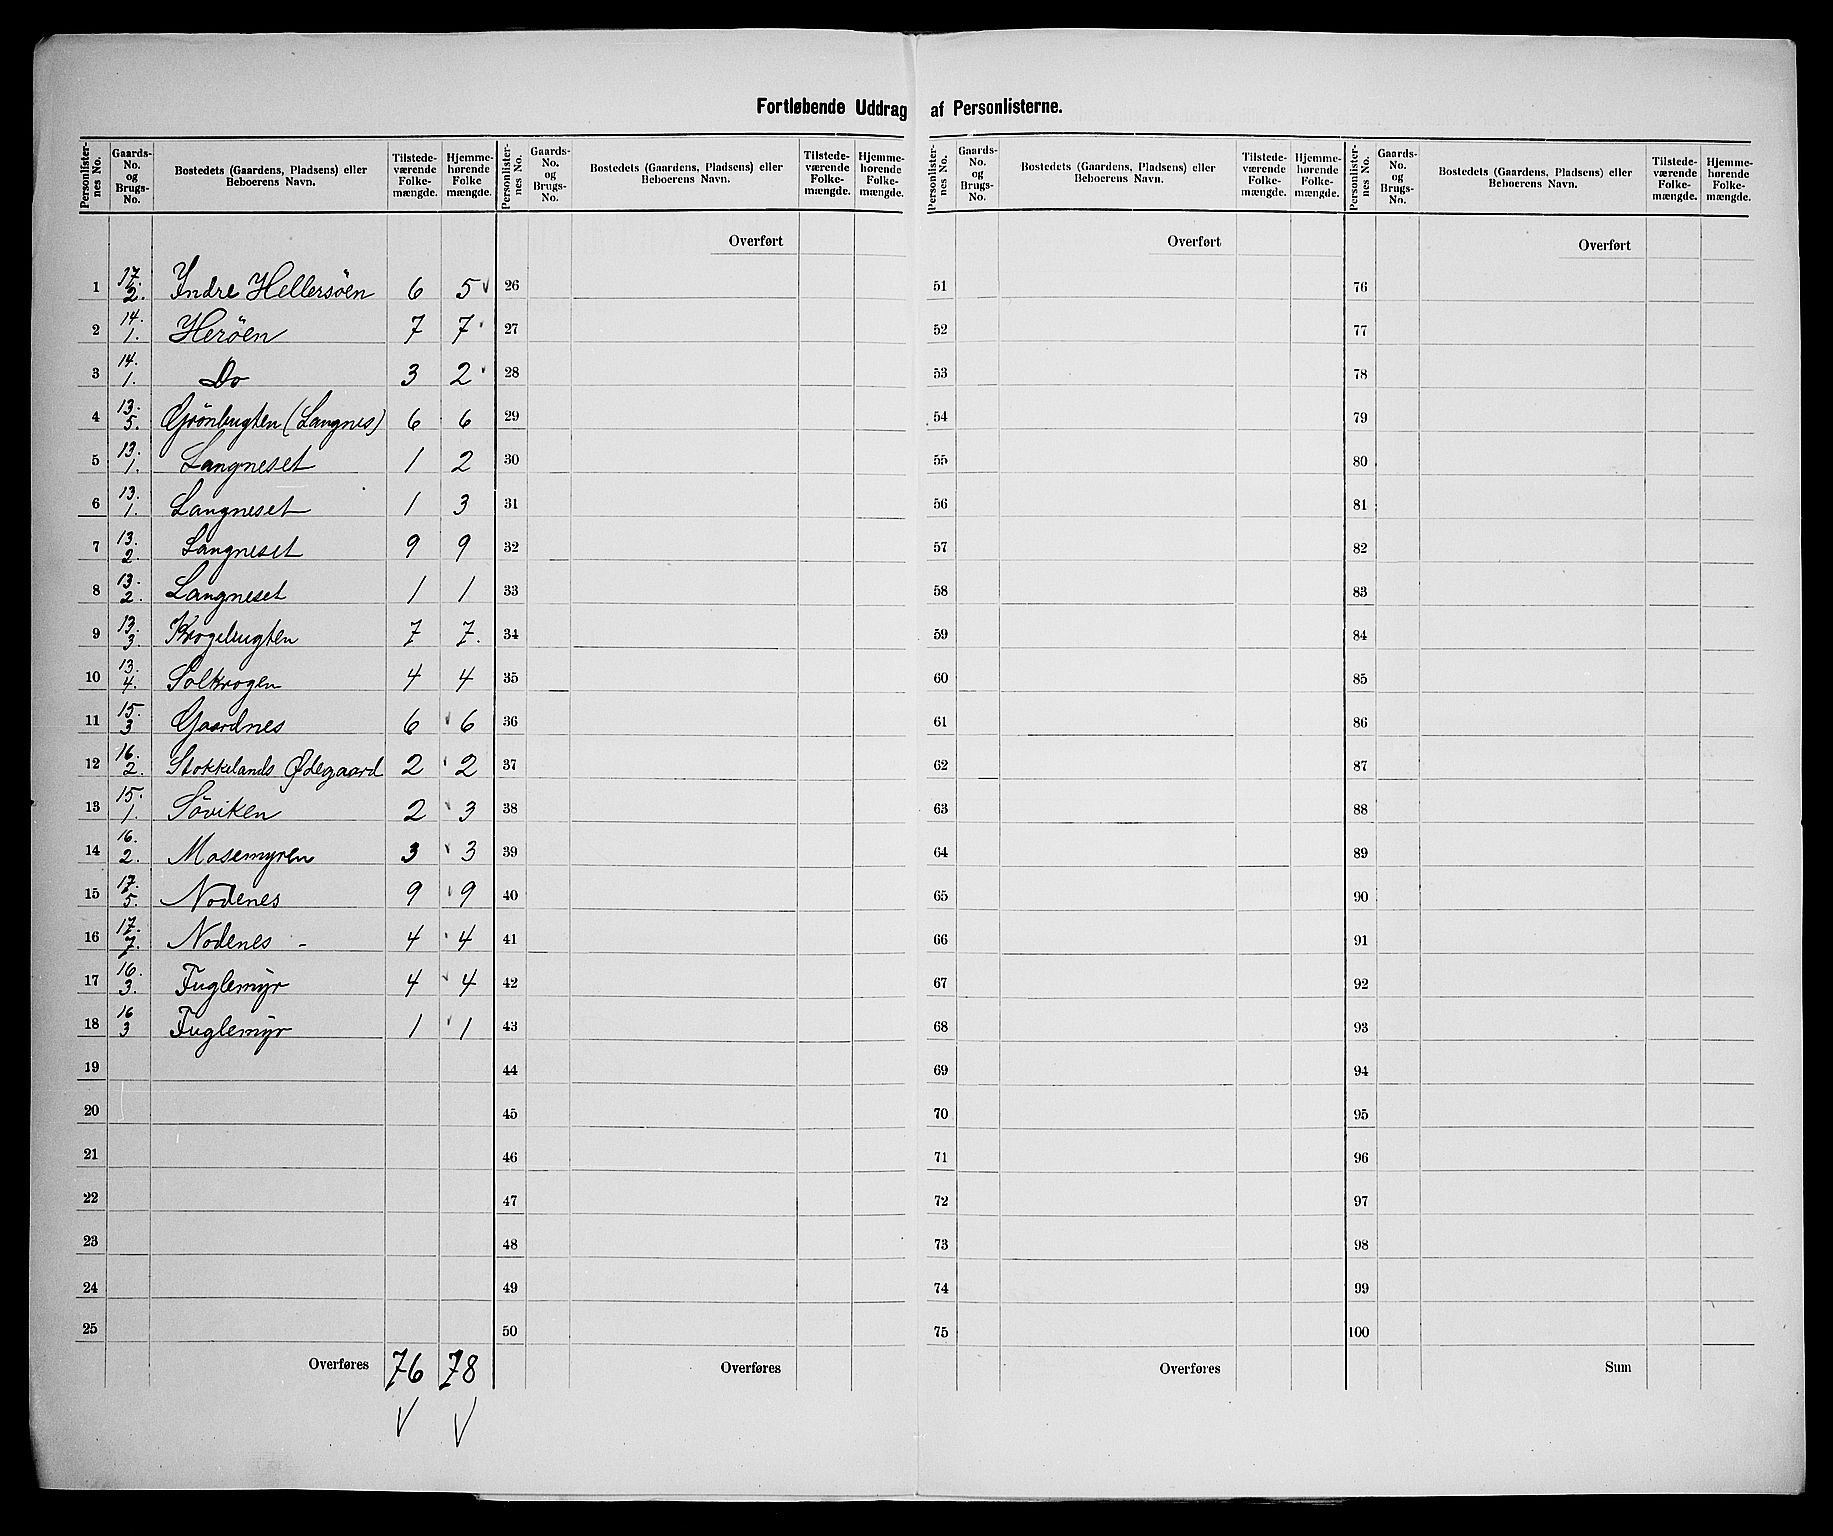 Fortløbende Uddrag af Personlisterne.
Personlister-nes No. Gaards-No. og Brugs-No. Bostedets (Gaardens, Pladsens) eller Beboerens Navn. Tilstede-værende Folke-mængde. Hjemme-hørende Folke mængde.
1 17. 2. Indre Hellersöen 6 5
2 14. 1. Heröen 7 7
3 14. 1. Do 3 2
4 13. 5. Grönbugten (Langnes) 6 6
5 13. 1. Langneset 1 2
6 13. 1. Langneset 1 3
7 13. 2. Langneset 9 9
8 13. 2. Langneset 1 1
9 13. 3. Krogebugten 7 7.
10 13. 4. Solkrogen 4 4
11 15. 3 Gaardnes 6 6
12 16. 2. Stokkelands Ødegaard 2 2
13 15. 1. Söviken 2 3
14 16. 2. Mosemyren 3 3
15 17. 5. Nodenes 9 9
16 17. 7. Nodenes - 4 4
17 16. 3. Fuglemyr 4 4
18 16 3 Fuglemyr 1 1
19
20
21
22
23
24
25
Overføres 76 78
Personlister-nes No. Gaards-No. og Brugs-No. Bostedets (Gaardens, Pladsens) eller Beboerens Navn. Tilstede-værende Folke-mængde. Hjemme-hørende Folke-mængde.
Overført
26
27
28
29
30
31
32
33
34
35
36
37
38
39
40
41
42
43
44
45
46
47
48
49
50
Overføres
Personlister-nes No. Gaards-No. og Brugs-No. Bostedets (Gaardens, Pladsens) eller Beboerens Navn. Tilstede-værende Folke-mængde. Hjemme-hørende Folke-mængde.
Overført
51
52
53
54
55
56
57
58
59
60
61
62
63
64
65
66
67
68
69
70
71
72
73
74
75
Overføres
Personlister-nes No. Gaards-No. og Brugs-No. Bostedets (Gaardens, Pladsens) eller Beboerens Navn. Tilstede-værende Folke-mængde. Hjemme-hørende Folke-mængde.
Overført
76
77
78
79
80
81
82
83
84
85
86
87
88
89
90
91
92
93
94
95
96
97
98
99
100
Sum